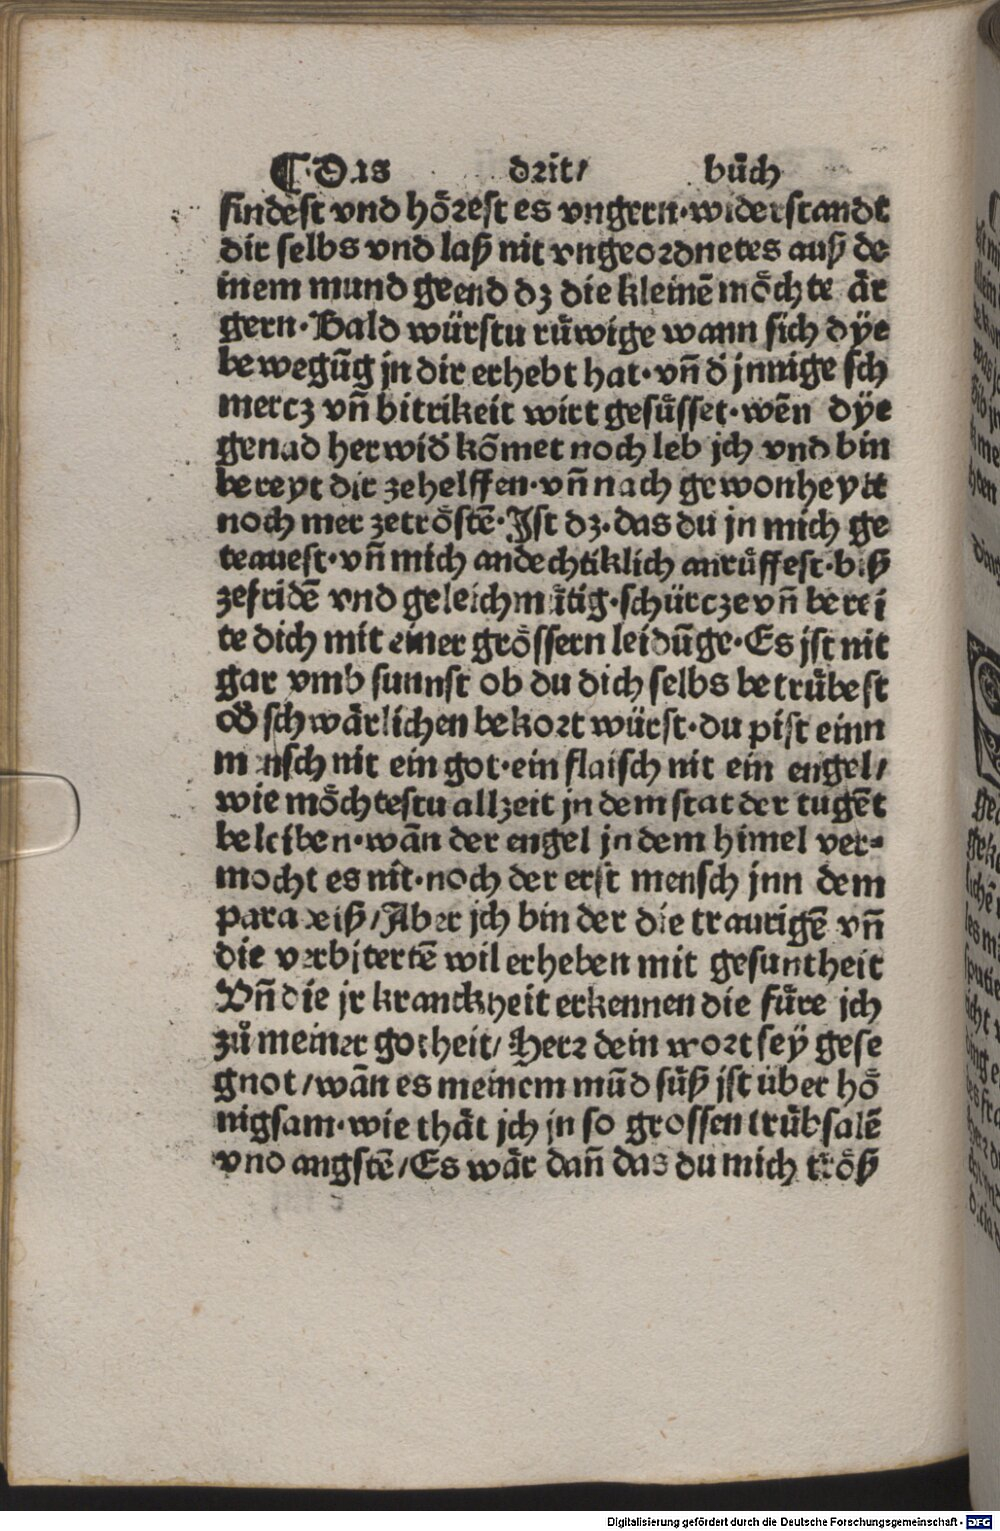 ¶ Das drit/ bůch
findest vnd hoͤrest es vngern·widerstandt
dir selbs vnd laß nit vngeordnetes auß de
inem mund geend dz die kleinē moͤchte aͤr
gern·Bald würstu ruͤwige wann sich dÿe
bewegūg jn dir erhebt hat·vn̄ d̓ jnnige sch
mercz vn̄ bitrikeit wirt gesuͤsset·wēn dÿe
genad herwid̓ kōmet noch leb jch vnd bin
bereyt dir zehelffen·vn̄ nach gewonheytt
noch mer zetroͤstē·Jst dz·das du jn mich ge
trauest·vn̄ mich andechtiklich anruͤffest·biß
zefridē vnd geleichmuͤtig·schürcze vn̄ berei
te dich mit einer groͤssern leidūge·Es jst nit
gar vmb sunnst ob du dich selbs betruͤbest
od̓ schwaͤrlichen bekort würst·du pist einn
mensch nit ein got·ein flaisch nit ein engel/
wie moͤchtestu allzeit jn dem stat der tugēt
beleiben·wān der engel jn dem himel ver-
mocht es nit·noch der erst mensch jnn dem
paradeiß/Aber jch bin der die traurigē vn̄
die verbitertē wil erheben mit gesuntheit
Vn̄ die jr kranckheit erkennen die fuͤre jch
zů meiner gotheit/ Herr dein wort sey gese
gnot/wān es meinem mūd suͤß jst über hoͤ
nigsam·wie thaͤt jch jn so grossen truͤbsalē
vnd angstē/Es waͤr dan̄ das du mich troͤß
Digitalisierung gefördert durch die Deutsche Forschungsgemeinschaft - DFG